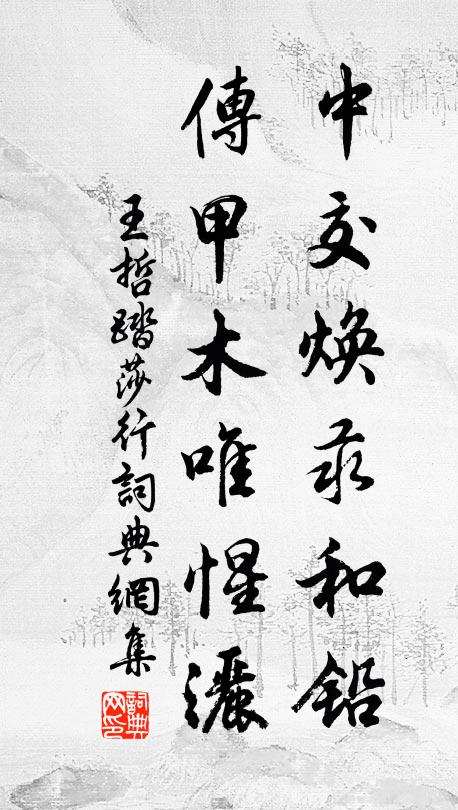 中交煥汞和鉛
傳甲木唯惺灑
王哲踏莎行詞典網集
詞典網印